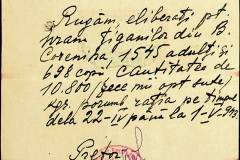 Rugăm, eliberați pt
hrana țiganilor din B.
Covenika, 1545 adulți și
698 copii, cantitatea de
10.800/zece mii opt sute/
kgr. porumb, rația pe timpul
dela 22-IV până la 1-V-943
Pretor